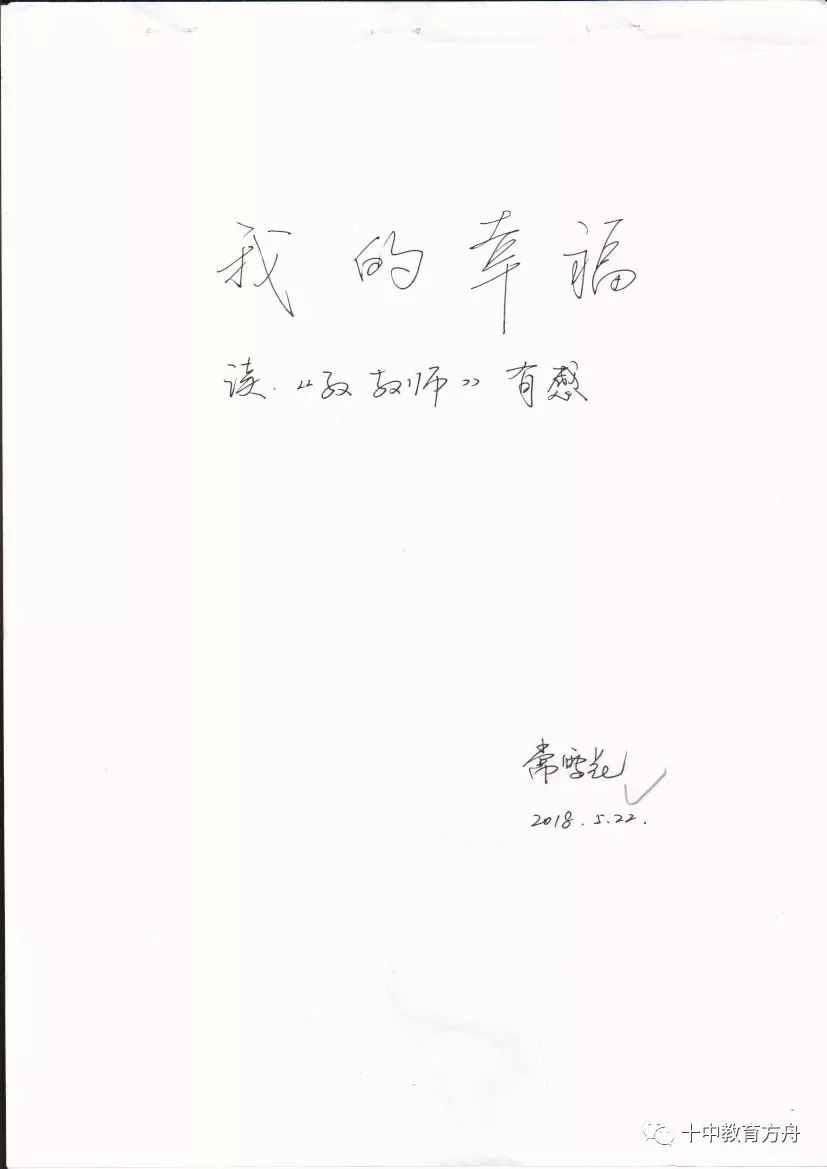 我的幸福
读《致教师》有感
常雪
2018.5.22.
十中教育方舟